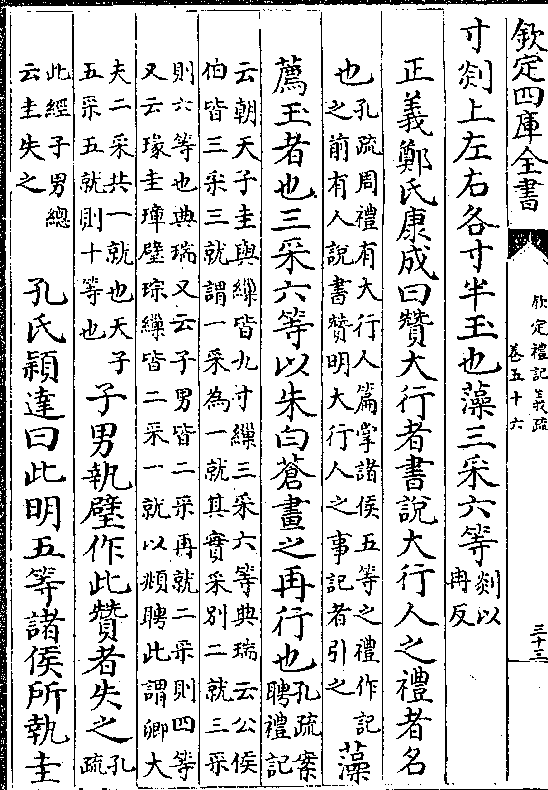 欽定四庫全書
欽定禮記義疏
卷五十六
三十三
寸剡上左右各寸半玉也藻三采六等剡以
冉反
正義鄭氏康成曰贊大行者書說大行人之禮者名
也孔疏周禮有大行人篇掌諸侯五等之禮作記
之前有人說書贊明大行人之事記者引之藻
薦玉者也三采六等以朱白蒼畫之再行也孔疏案
聘禮記
云朝天子圭與繅皆九寸繅三采六等典瑞云公侯
伯皆三采三就謂一采為一就其實采別二就三采
則六等也典瑞又云子男皆二采再就二采則四等
又云瑑圭璋璧琮繅皆二采一就以頫聘此謂卿大
夫二采共一就也天子
五采五就則十等也子男執璧作此贊者失之孔
疏
此經子男總
云圭失之孔氏穎達曰此明五等諸侯所執圭